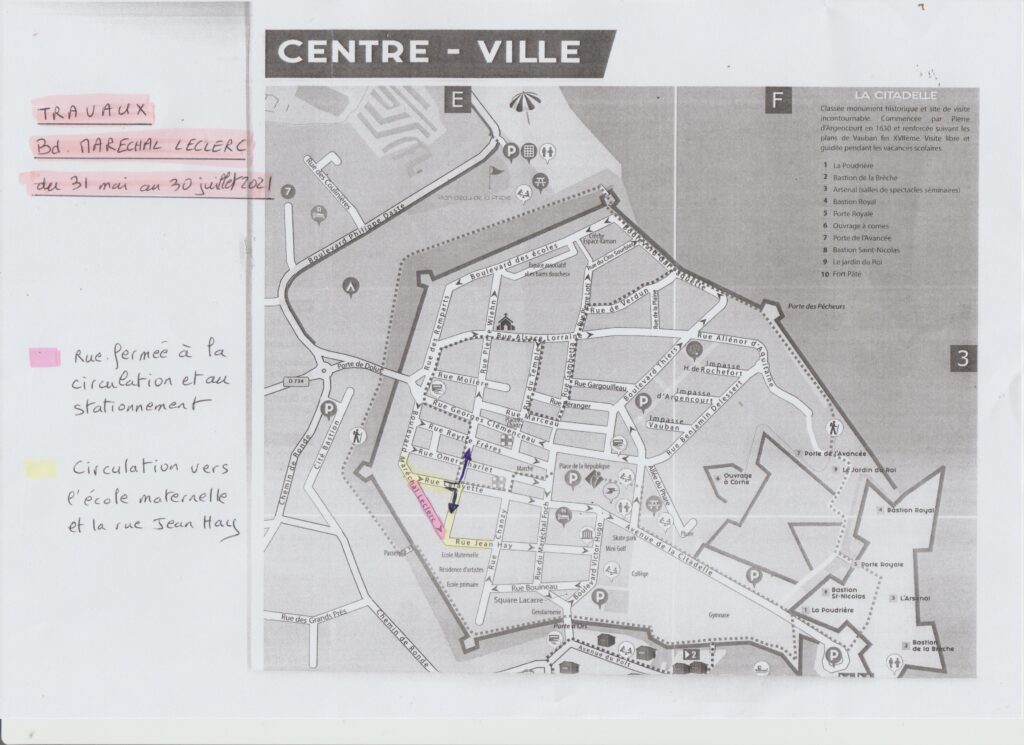 CENTRE - VILLE
TRAVAUX
Bd. MARECHAL LECLERC
du 31 mai au 30 juillet 2021
Rue fermée à la
circulation et au
stationnement
Circulation vers
l'école maternelle
et la rue Jean Hay
E
F
3
LA CITADELLE
Classée monument historique et site de visite
incontournable. Commencée par Pierre
d'Argencourt en 1630 et renforcée suivant les
plans de Vauban fin XVIIème. Visite libre et
guidée pendant les vacances scolaires.
1 La Poudrière
2 Bastion de la Brèche
3 Arsenal (salles de spectacles séminaires)
4 Bastion Royal
5 Porte Royale
6 Ouvrage à cornes
7 Porte de l'Avancée
8 Bastion Saint-Nicolas
9 Le jardin du Roi
10 Fort Pâté
Rue des Coulinières
7
Boulevard Philippe Daste
Boulevard des écoles
Crèche
Espace Ramon
Espace associatif
Rue de Verdun
Porte des Pêcheurs
Rue des Remparts
Rue Pierre Wiehn
Rue Alsace Lorraine
Rue Aliénor d'Aquitaine
Boulevard Thiers
H. de Rochefort
Impasse
Impasse
d'Argencourt
Impasse
Vauban
Rue Benjamin Delessert
Porte de Dolus
D 734
Rue Molière
Rue Gargouilleau
Rue Béranger
Rue Marceau
Rue Georges Clémenceau
Rue Reytre Frères
Rue Omer Charlet
Rue Lafayette
Marché
Place de la République
Boulevard Maréchal Leclerc
Rue Jean Hay
Rue Chanzy
Rue du Maréchal Foch
Boulevard Victor Hugo
Skate park
Mini Golf
Collège
Avenue de la Citadelle
Ecole Maternelle
Résidence d'artistes
Ecole primaire
Rue Bouineau
Square Lacarre
Gendarmerie
Porte d'Ors
Avenue du Port
Gymnase
Cité Bastion
Chemin de Ronde
Rue des Grands Prés
Chemin de Ronde
Ouvrage
à Corne
7 Porte de l'Avancée
9 Le Jardin du Roi
4 Bastion Royal
5 Porte Royale
8 Bastion
St-Nicolas
1 La Poudrière
3 L'Arsenal
2 Bastion
de la Brèche